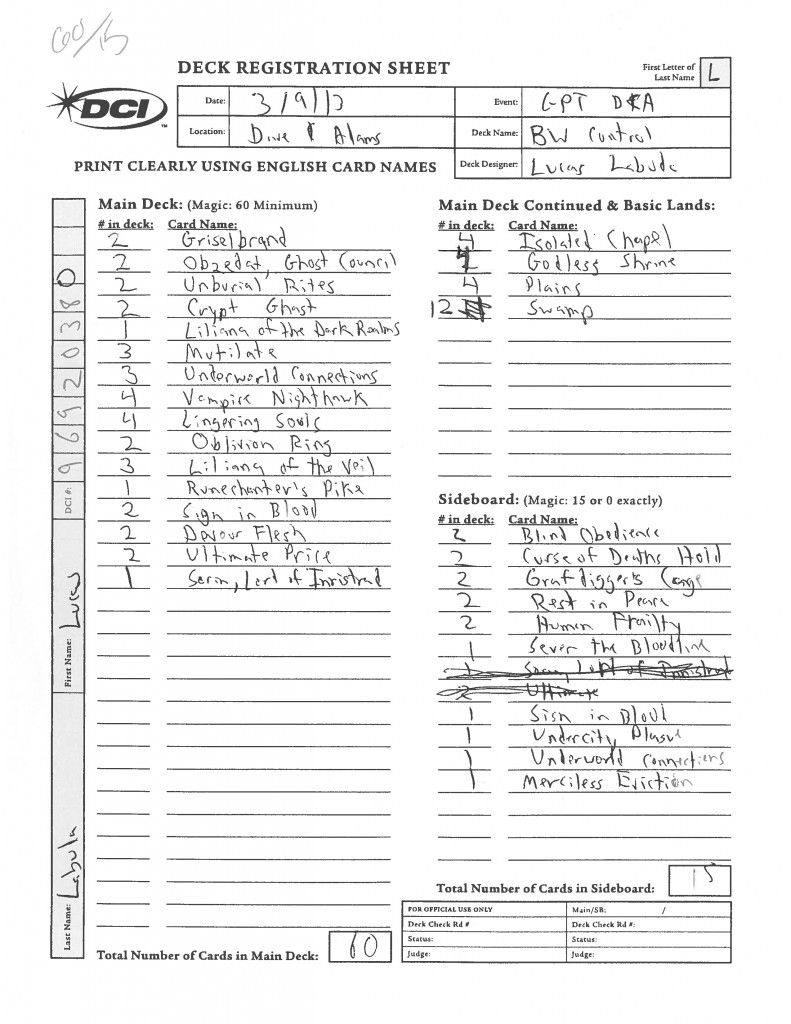 60/15
DECK REGISTRATION SHEET
First Letter of Last Name L
DCI
Date: 3/9/13
Event: GPT DKA
Location: Dave & Adams
Deck Name: BW Control
PRINT CLEARLY USING ENGLISH CARD NAMES
Deck Designer: Lucas Labuda
Main Deck: (Magic: 60 Minimum)
# in deck: Card Name:
2 Griselbrand
2 Obzedat, Ghost Council
2 Unburial Rites
2 Crypt Ghast
1 Liliana of the Dark Realms
3 Mutilate
3 Underworld Connections
4 Vampire Nighthawk
4 Lingering Souls
2 Oblivion Ring
3 Liliana of the Veil
1 Runechanter's Pike
2 Sign in Blood
2 Devour Flesh
2 Ultimate Price
1 Sorin, Lord of Innistrad
Total Number of Cards in Main Deck: 60
Main Deck Continued & Basic Lands:
# in deck: Card Name:
4 Isolated Chapel
Godless Shrine
4 Plains
12 Swamp
Sideboard: (Magic: 15 or 0 exactly)
# in deck: Card Name:
2 Blind Obedience
2 Curse of Deaths Hold
2 Grafdigger's Cage
2 Rest in Peace
2 Human Frailty
1 Sever the Bloodline
1 Sorin, Lord of Innistrad
2 Ultimate
1 Sign in Blood
1 Undercity Plague
1 Underworld Connections
1 Merciless Eviction
Total Number of Cards in Sideboard: 15
FOR OFFICIAL USE ONLY
Main/SB: /
Deck Check Rd #
Deck Check Rd #:
Status:
Status:
Judge:
Judge:
DCI #: 96920380
First Name: Lucas
Last Name: Labuda